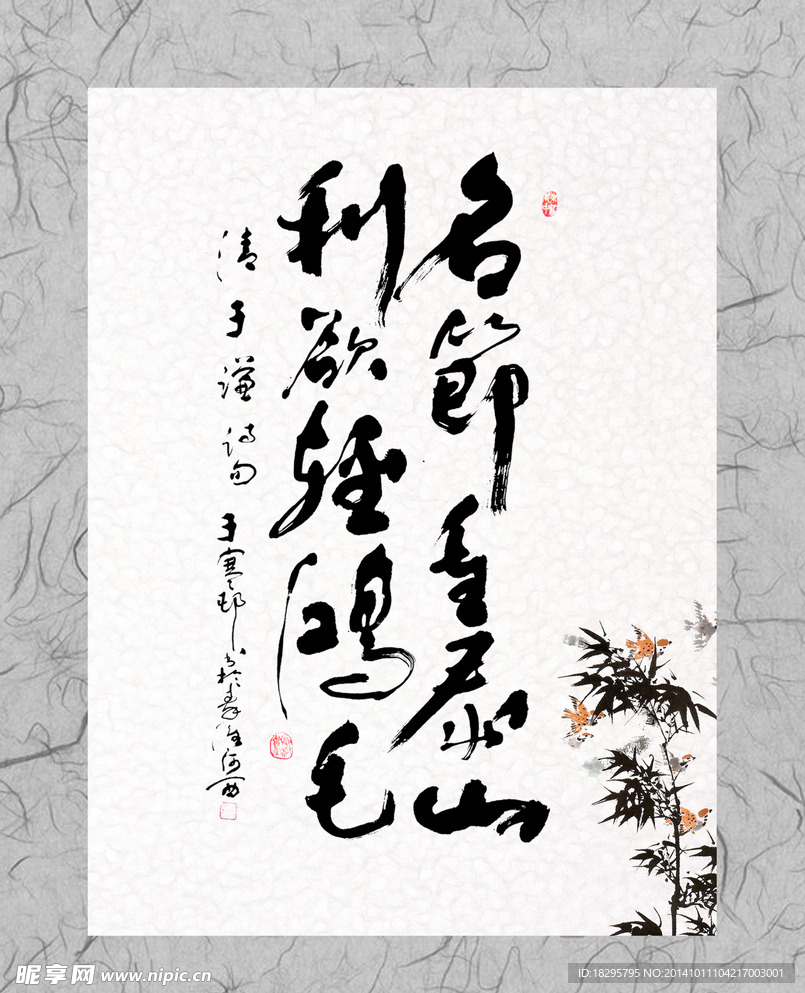 名節重泰山
利欲輕鴻毛
清于谦诗句
于寒邨书於
昵享网 www.nipic.cn
ID:18295795 NO:20141011104217003001